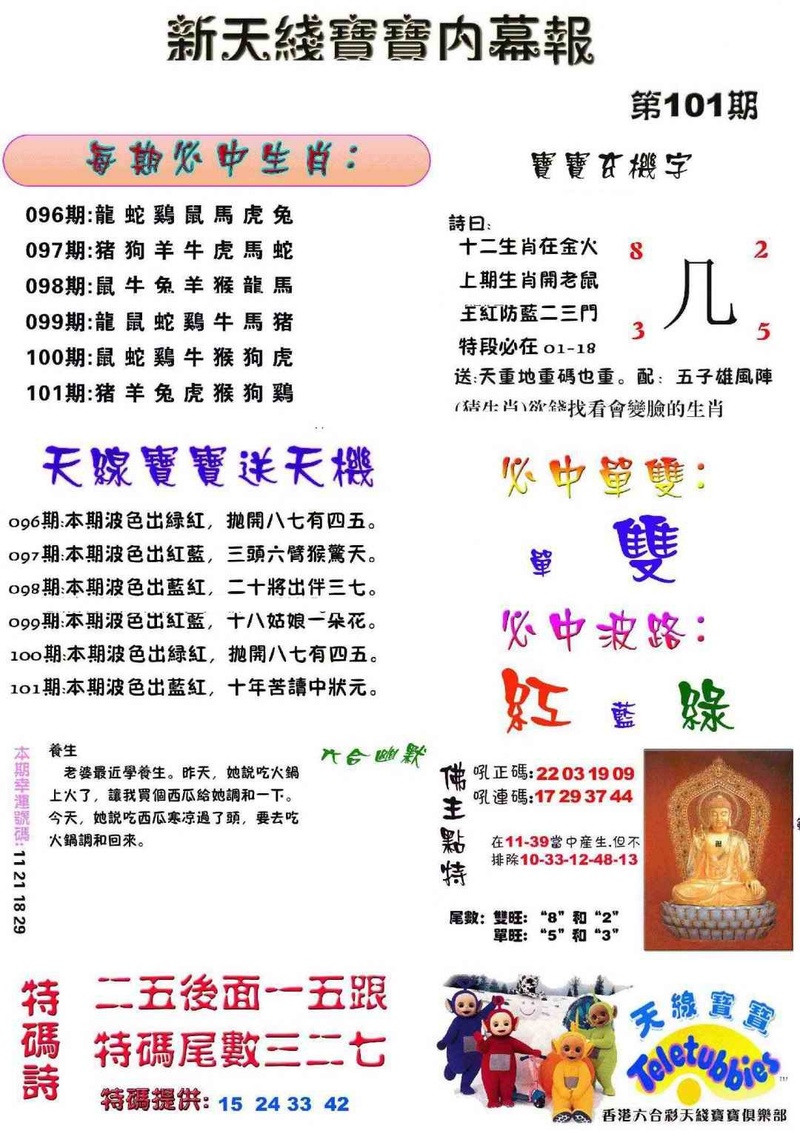 新天綫寶寶内幕報
第101期
每期必中生肖：
096期:龍 蛇 鷄 鼠 馬 虎 兔
097期:猪 狗 羊 牛 虎 馬 蛇
098期:鼠 牛 兔 羊 猴 龍 馬
099期:龍 鼠 蛇 鷄 牛 馬 猪
100期:鼠 蛇 鷄 牛 猴 狗 虎
101期:猪 羊 兔 虎 猴 狗 鷄
寶寶玄機字
詩曰:
十二生肖在金火
上期生肖開老鼠
主紅防藍二三門
特段必在 01-18
8
2
几
3
5
送:天重地重碼也重。配：五子雄風陣
(猜生肖)欲錢找看會變臉的生肖
天線寶寶送天機
096期:本期波色出綠紅，拋開八七有四五。
097期:本期波色出紅藍，三頭六臂猴驚天。
098期:本期波色出藍紅，二十將出伴三七。
099期:本期波色出紅藍，十八姑娘一朵花。
100期:本期波色出綠紅，拋開八七有四五。
101期:本期波色出藍紅，十年苦讀中狀元。
必中單雙：
單 雙
必中波路：
紅 藍 綠
本期幸運號碼:11 21 18 29
養生
六合幽默
老婆最近學養生。昨天，她說吃火鍋
上火了，讓我買個西瓜給她調和一下。
今天，她說吃西瓜寒凉過了頭，要去吃
火鍋調和回來。
佛主點特
吼正碼:22 03 19 09
吼連碼:17 29 37 44
在11-39當中産生.但不
排除10-33-12-48-13
尾數：雙旺：“8”和“2”
單旺：“5”和“3”
特碼詩
二五後面一五跟
特碼尾數三二七
特碼提供: 15 24 33 42
天線寶寶
Teletubbies
香港六合彩天綫寶寶俱樂部